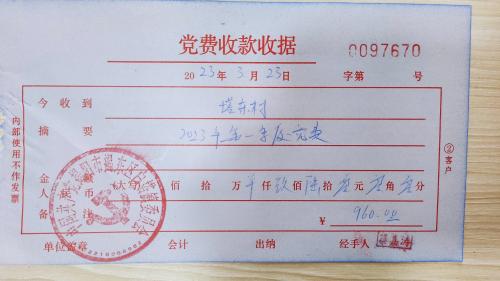 党费收款收据 0097670
2023年3月23日 字第 号
今收到 塔 村
摘要 2023年第一季度党费
金额 人民币(大写) 佰 拾 万 仟玖佰陆拾 元 角 分
备注 ¥ 960.00
单位盖章 会计 出纳 经手人
内部使用不作发票
②客户